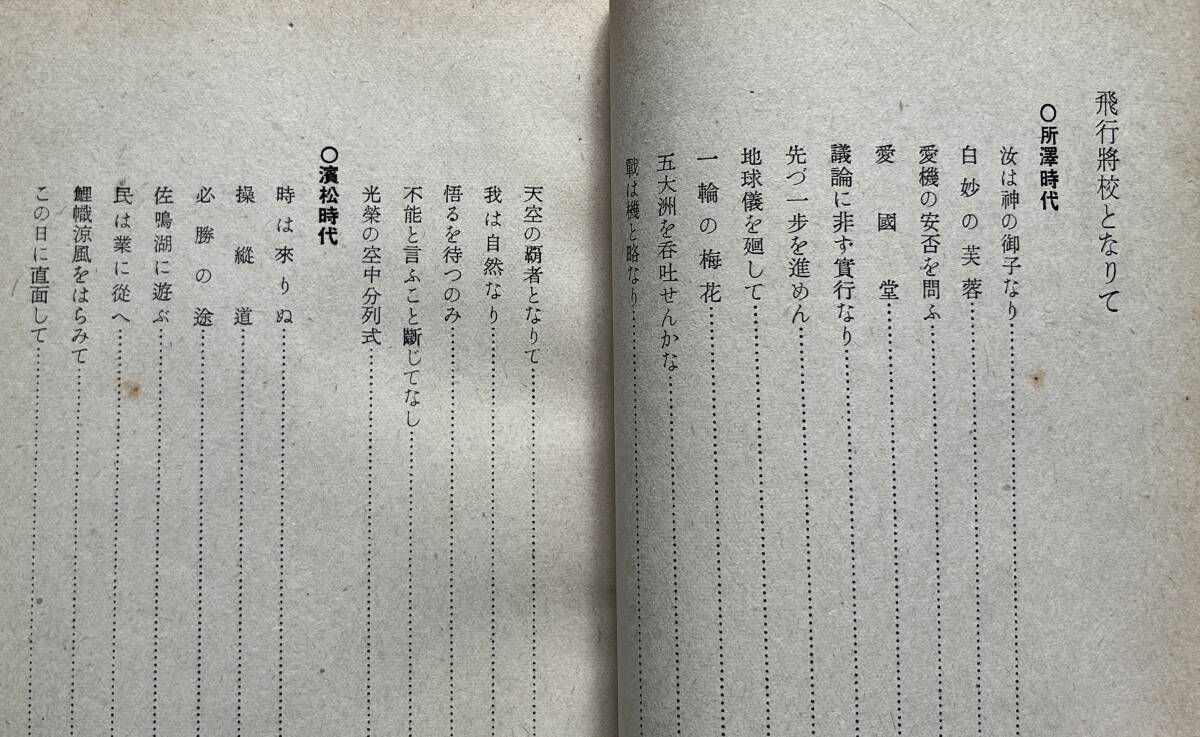 飛行將校となりて
〇所澤時代
汝は神の御子なり
白妙の芙蓉
愛機の安否を問ふ
愛國堂
議論に非ず實行なり
先づ一步を進めん
地球儀を廻して
一輪の梅花
五大洲を呑吐せんかな
戰は機と略なり
天空の覇者となりて
我は自然なり
悟るを待つのみ
不能と言ふこと斷じてなし
光榮の空中分列式
〇濱松時代
時は來りぬ
操縱道
必勝の途
佐鳴湖に遊ぶ
民は業に從へ
鯉幟涼風をはらみて
この日に直面して